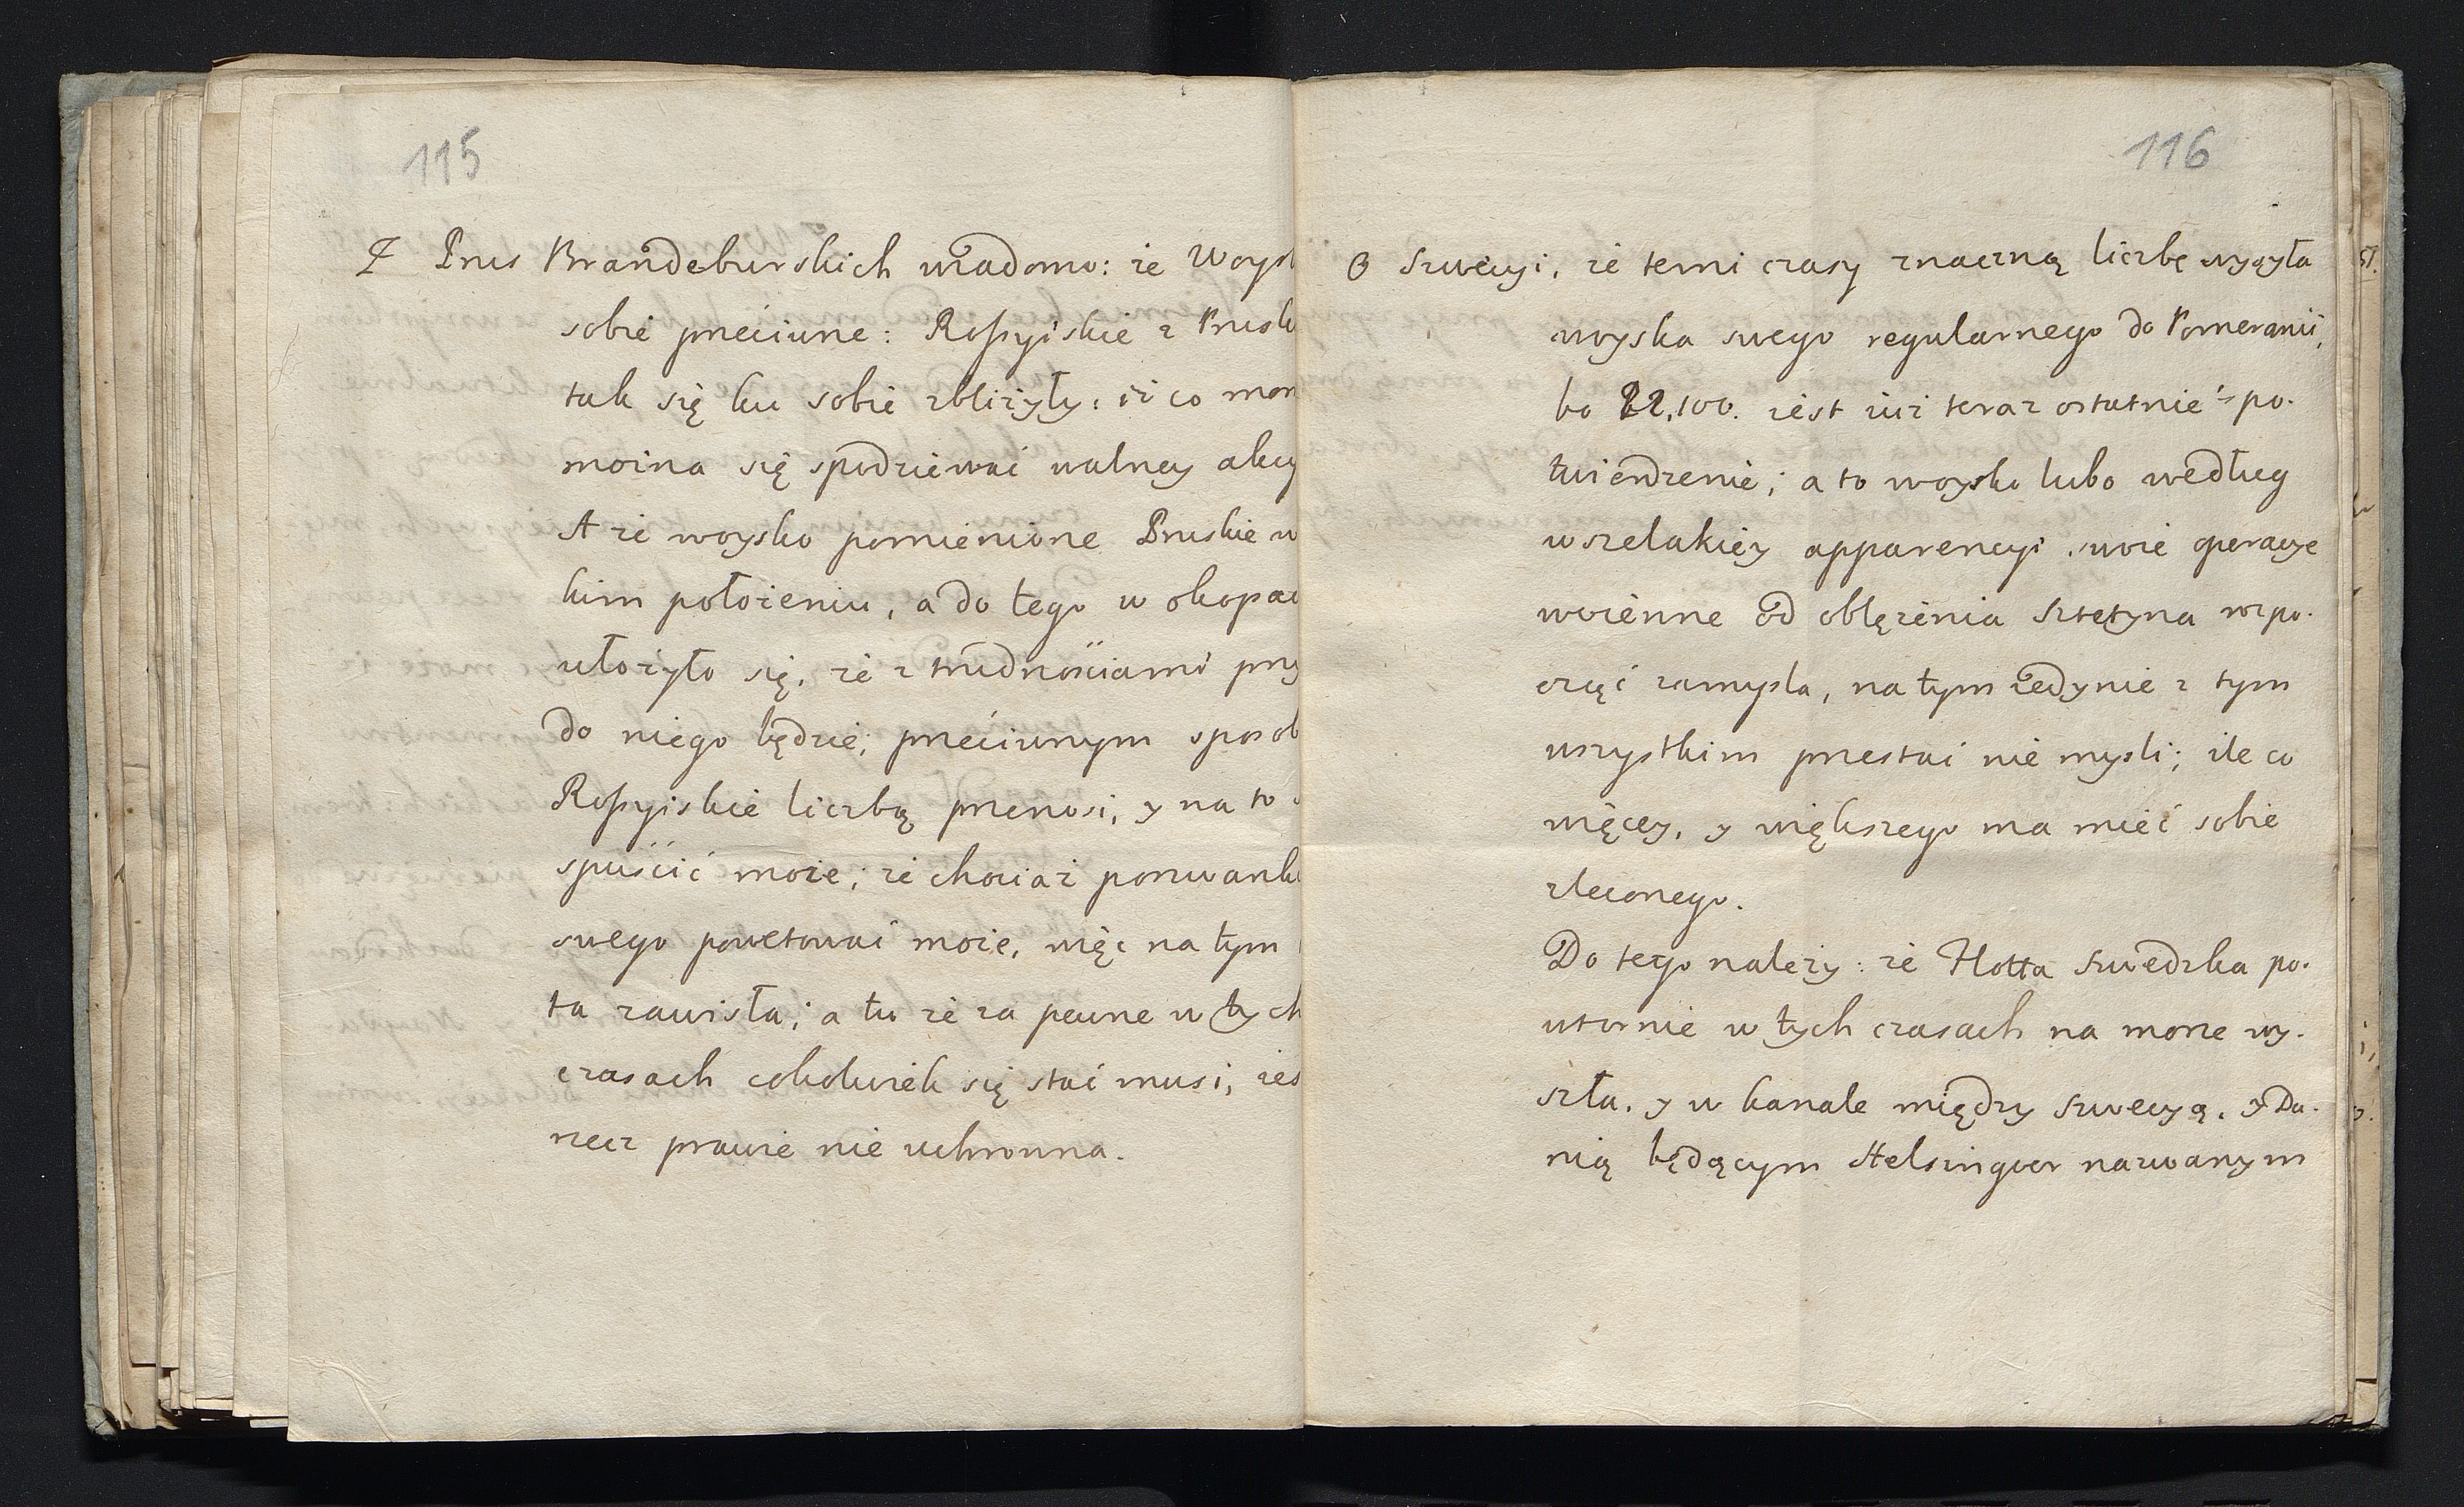 115
Z Prus Brandeburskich wiadomo: że Woysk
sobie przeciwne: Rossyiskie z Prusk
tak się ku sobie zbliżyły, iż co mom
można się spodziewać walney akcy
A że woysko pomienione Pruskie w
kim położeniu, a do tego w okopac
ułożyło się, że z trudnościami przy
do niego będzie; przeciwnym sposob
Rossyiskie liczbą przenosi, y na to
spuścić może; że chociaż porwank
swego powetować może, więc na tym
ta zawisła; a tu że za pewne w tych
czasach cokolwiek się stać musi, ies
rzecz prawie nie uchronna.
116
O Szwecyi, że temi czasy znaczną liczbę wysyła
woyska swego regularnego do Pomeranii,
bo 22,100. iest iuż teraz ostatnie po-
twierdzenie; a to woysko lubo według
wszelakiey apparencyi swoie operacye
woienne od oblężenia Sztetyna rozpo-
cząć zamysla, na tym iedynie z tym
wszystkim przestać nie mysli; ile co
więcey, y większego ma mieć sobie
zleconego.
Do tego należy: że Flotta Szwedzka po-
wtornie w tych czasach na morze wy-
szła, y w kanale między Szwecyą, y Da-
nią będącym Helsingoer nazwanym